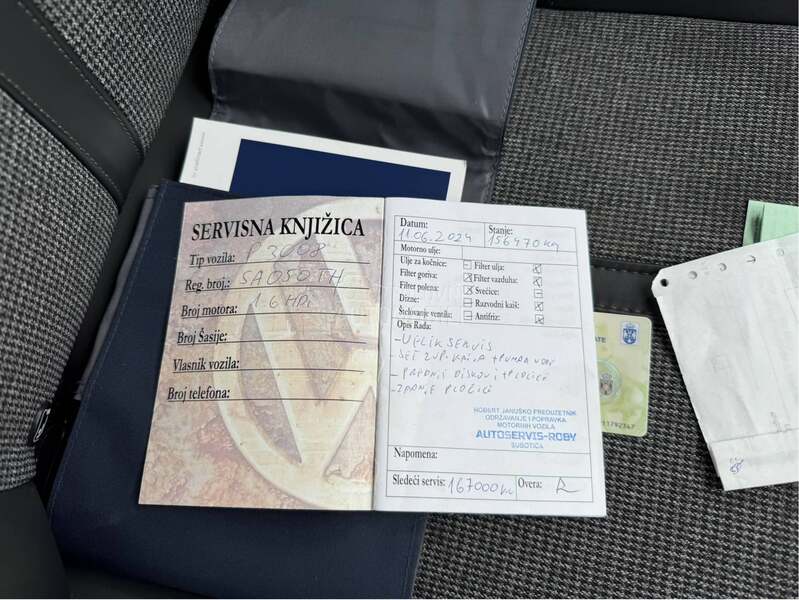 SERVISNA KNJIŽICA
Tip vozila: P 3008
Reg. broj.: SA050TH
Broj motora: 1.6 HDi
Broj Šasije:
Vlasnik vozila:
Broj telefona:
Datum: 11.06.2024
Stanje: 156470 km
Motorno ulje:
Ulje za kočnice:
Filter ulja:
Filter goriva:
Filter vazduha:
Filter polena:
Svećice:
Dizne:
Razvodni kaiš:
Štelovanje ventila:
Antifriz:
Opis Rada:
- VELIK SERVIS
- SET ZUP. KAIŠA + PUMPA VODE
- PREDNJE DISKOVI + PLOČICE
- ZADNJE PLOČICE
ROBERT JANUŠKO PREDUZETNIK
ODRŽAVANJE I POPRAVKA
MOTORNIH VOZILA
AUTOSERVIS-ROBY
SUBOTICA
Napomena:
Sledeći servis: 167000 km
Overa: